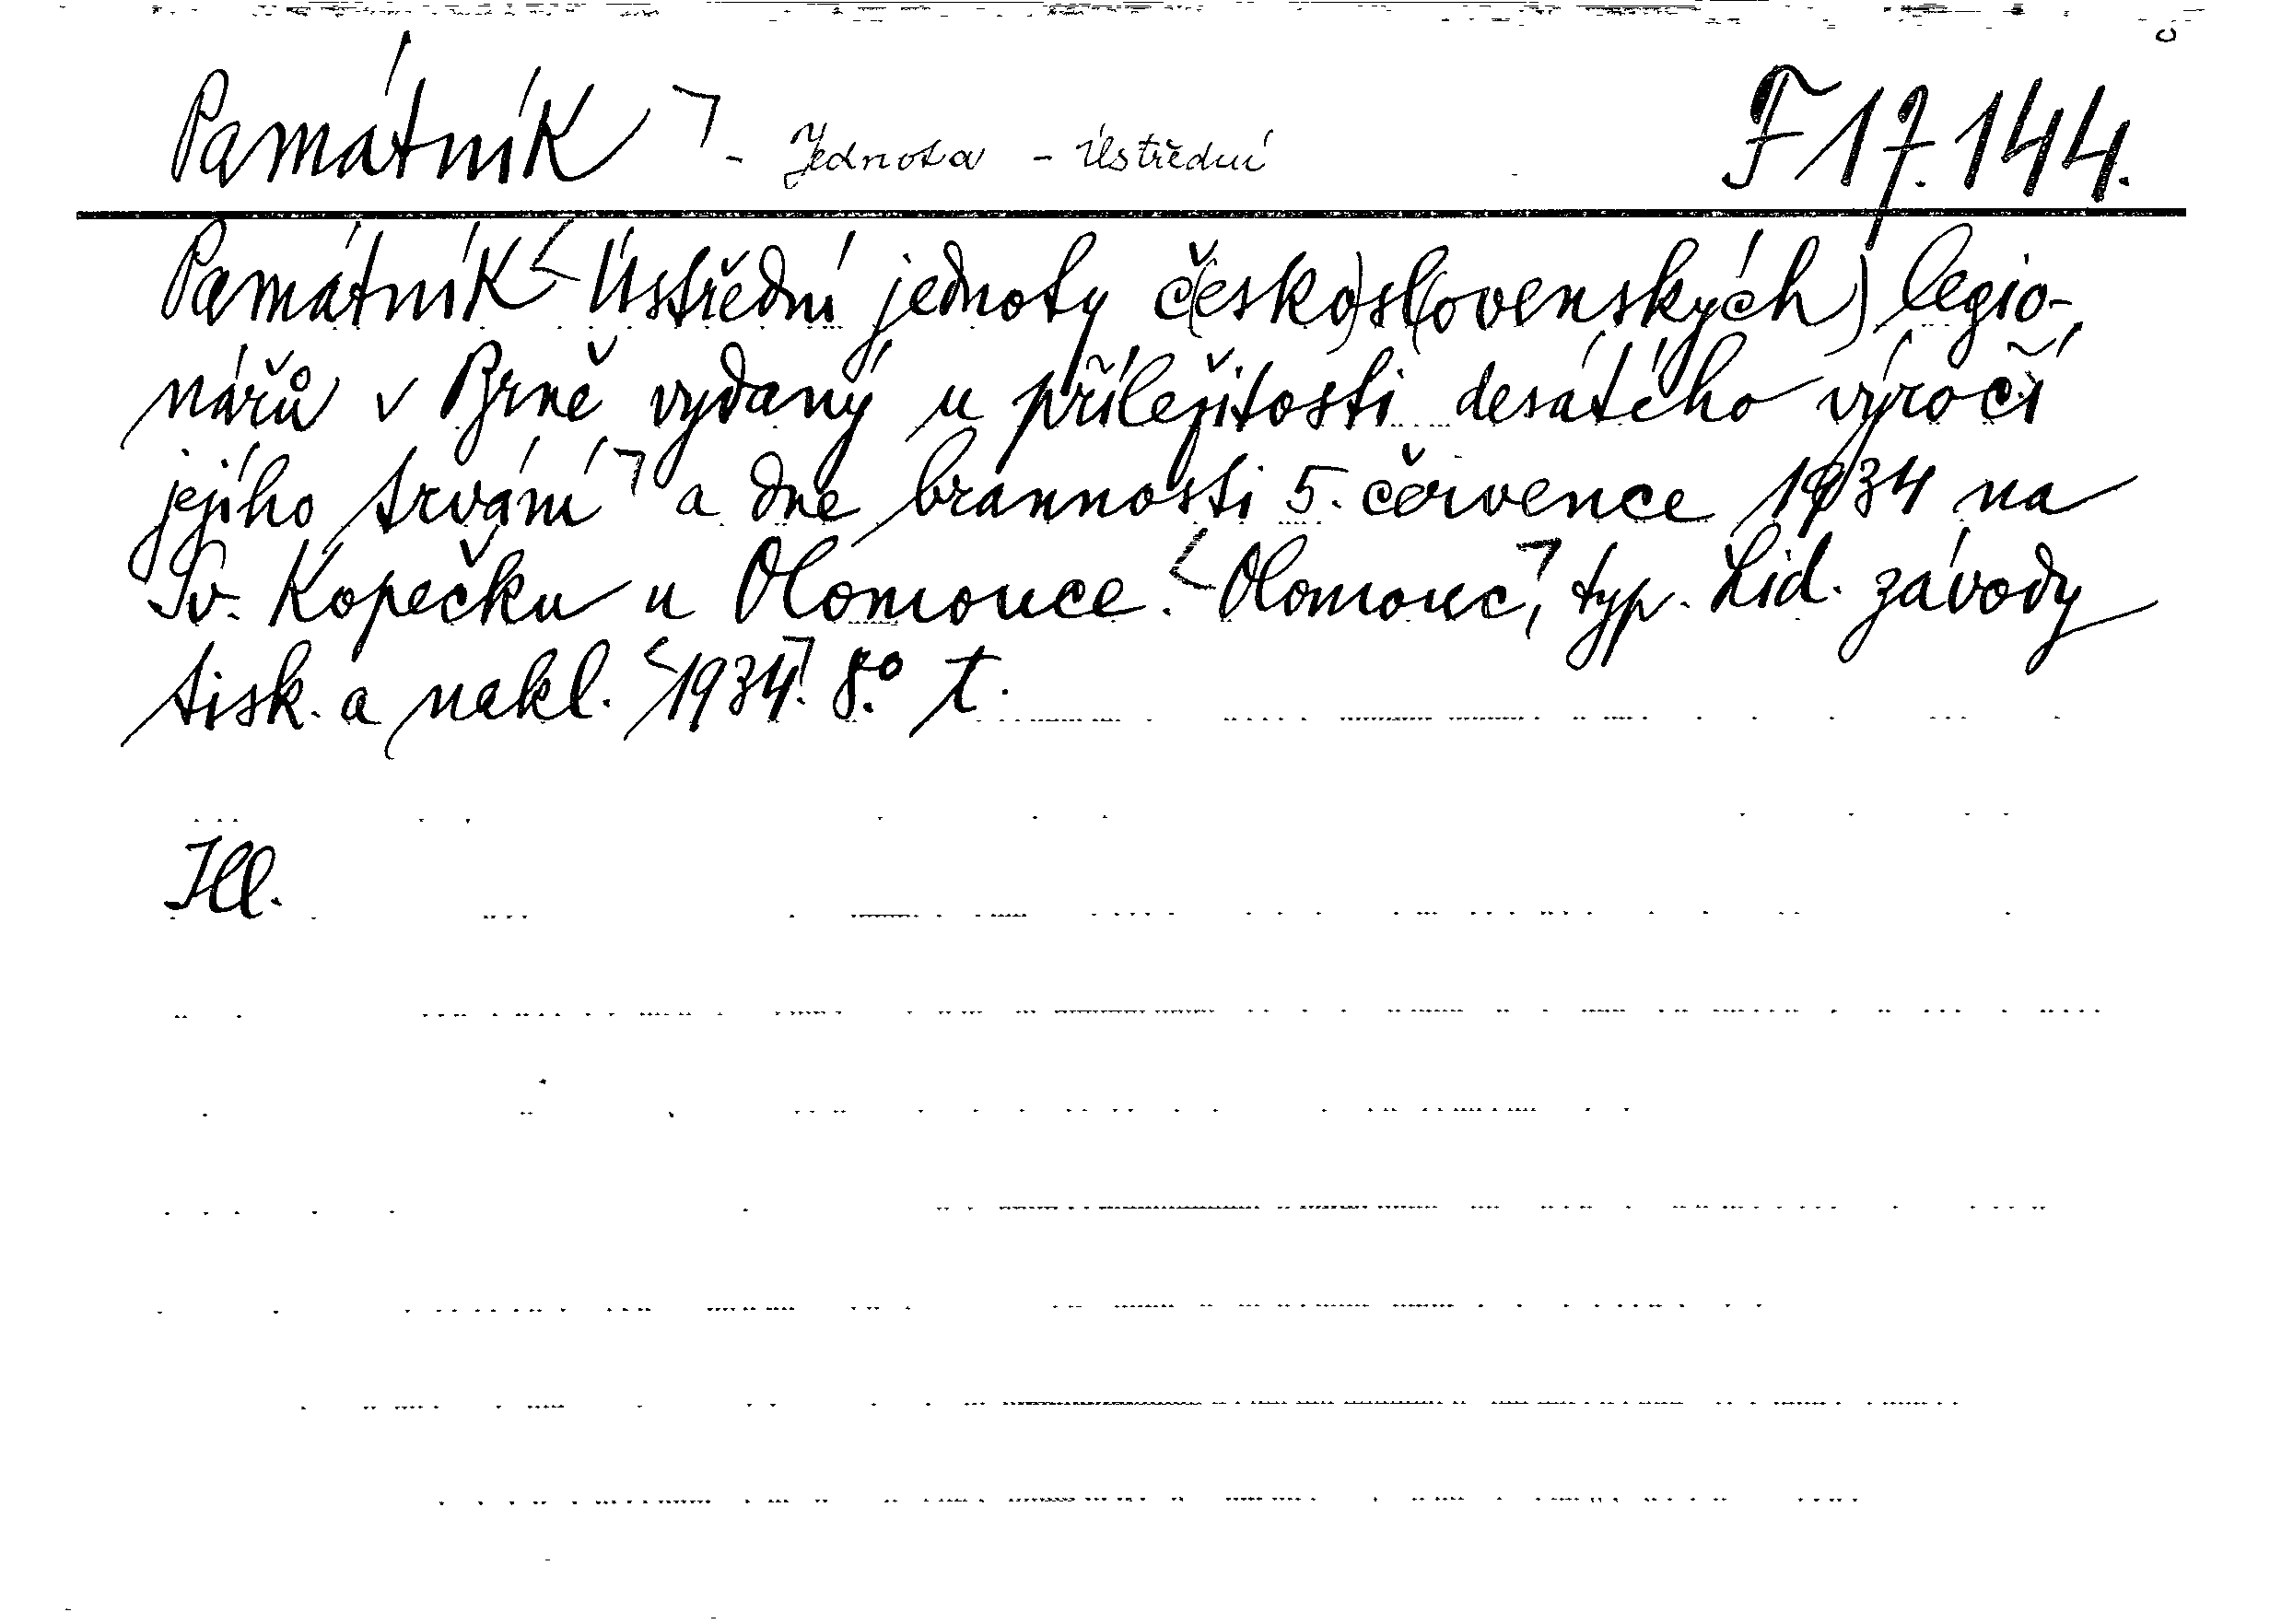 Památník ⌝ - Jednota - Ústřední F 17.144.
Památník < Ústřední jednoty č(esko)sl(ovenských) legio-
nářů v Brně vydaný u příležitosti desátého výročí
jejího trvání ⌝ a dne brannosti 5. července 1934 na
Sv. Kopečku u Olomouce. < Olomouc ⌝, typ. Lid. závody
tisk. a nakl. < 1934 ⌝. 8.° t.
Ill.